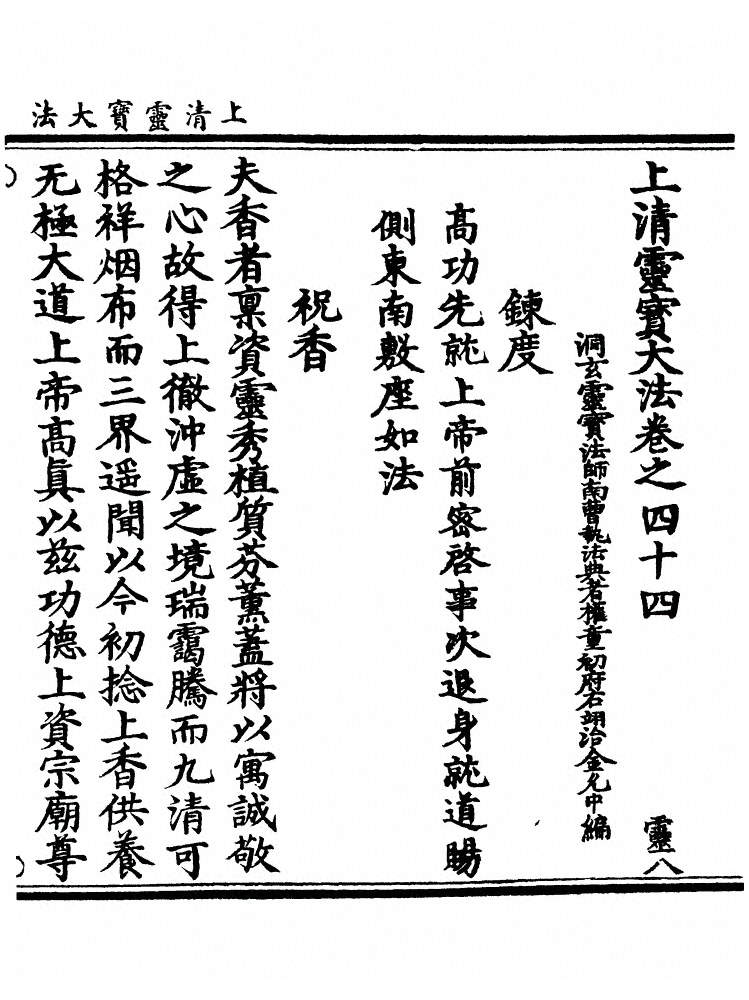 上清靈寶大法
上清靈寶大法卷之四十四
靈八
洞玄靈寶法師南曹執法典者權童初府右翊治金允中編
鍊度
高功先就上帝前密啓事次退身就道場
側東南敷座如法
祝香
夫香者稟資靈秀植質芬薰蓋將以寓誠敬
之心故得上徹沖虛之境瑞靄騰而九清可
格祥烟布而三界遥聞以今初捻上香供養
无極大道上帝高眞以兹功德上資宗廟尊